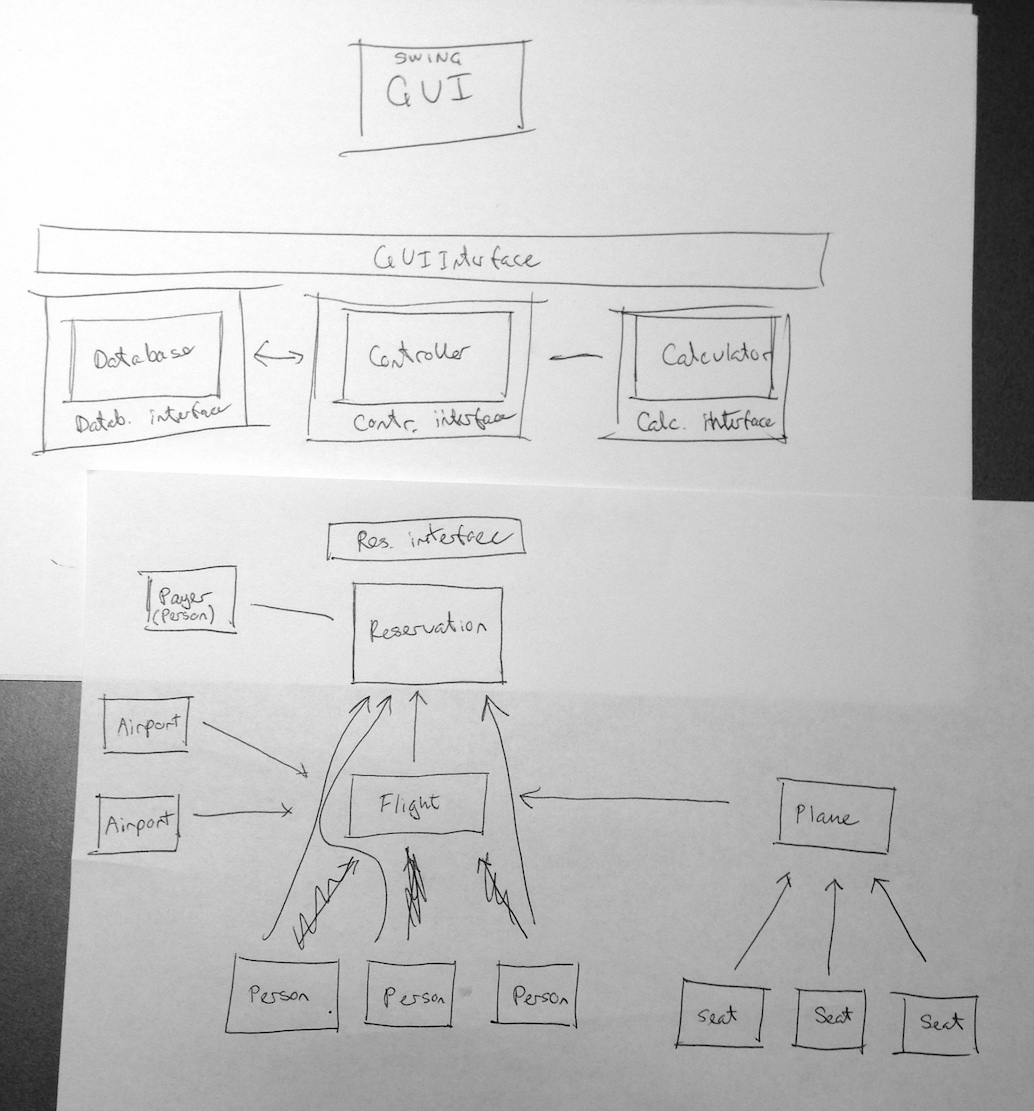 SWING
GUI
GUI Interface
Database
Datab. interface
Controller
Contr. interface
Calculator
Calc. interface
Res. interface
Payer
(Person)
Reservation
Airport
Airport
Flight
Plane
Person
Person
Person
Seat
Seat
Seat